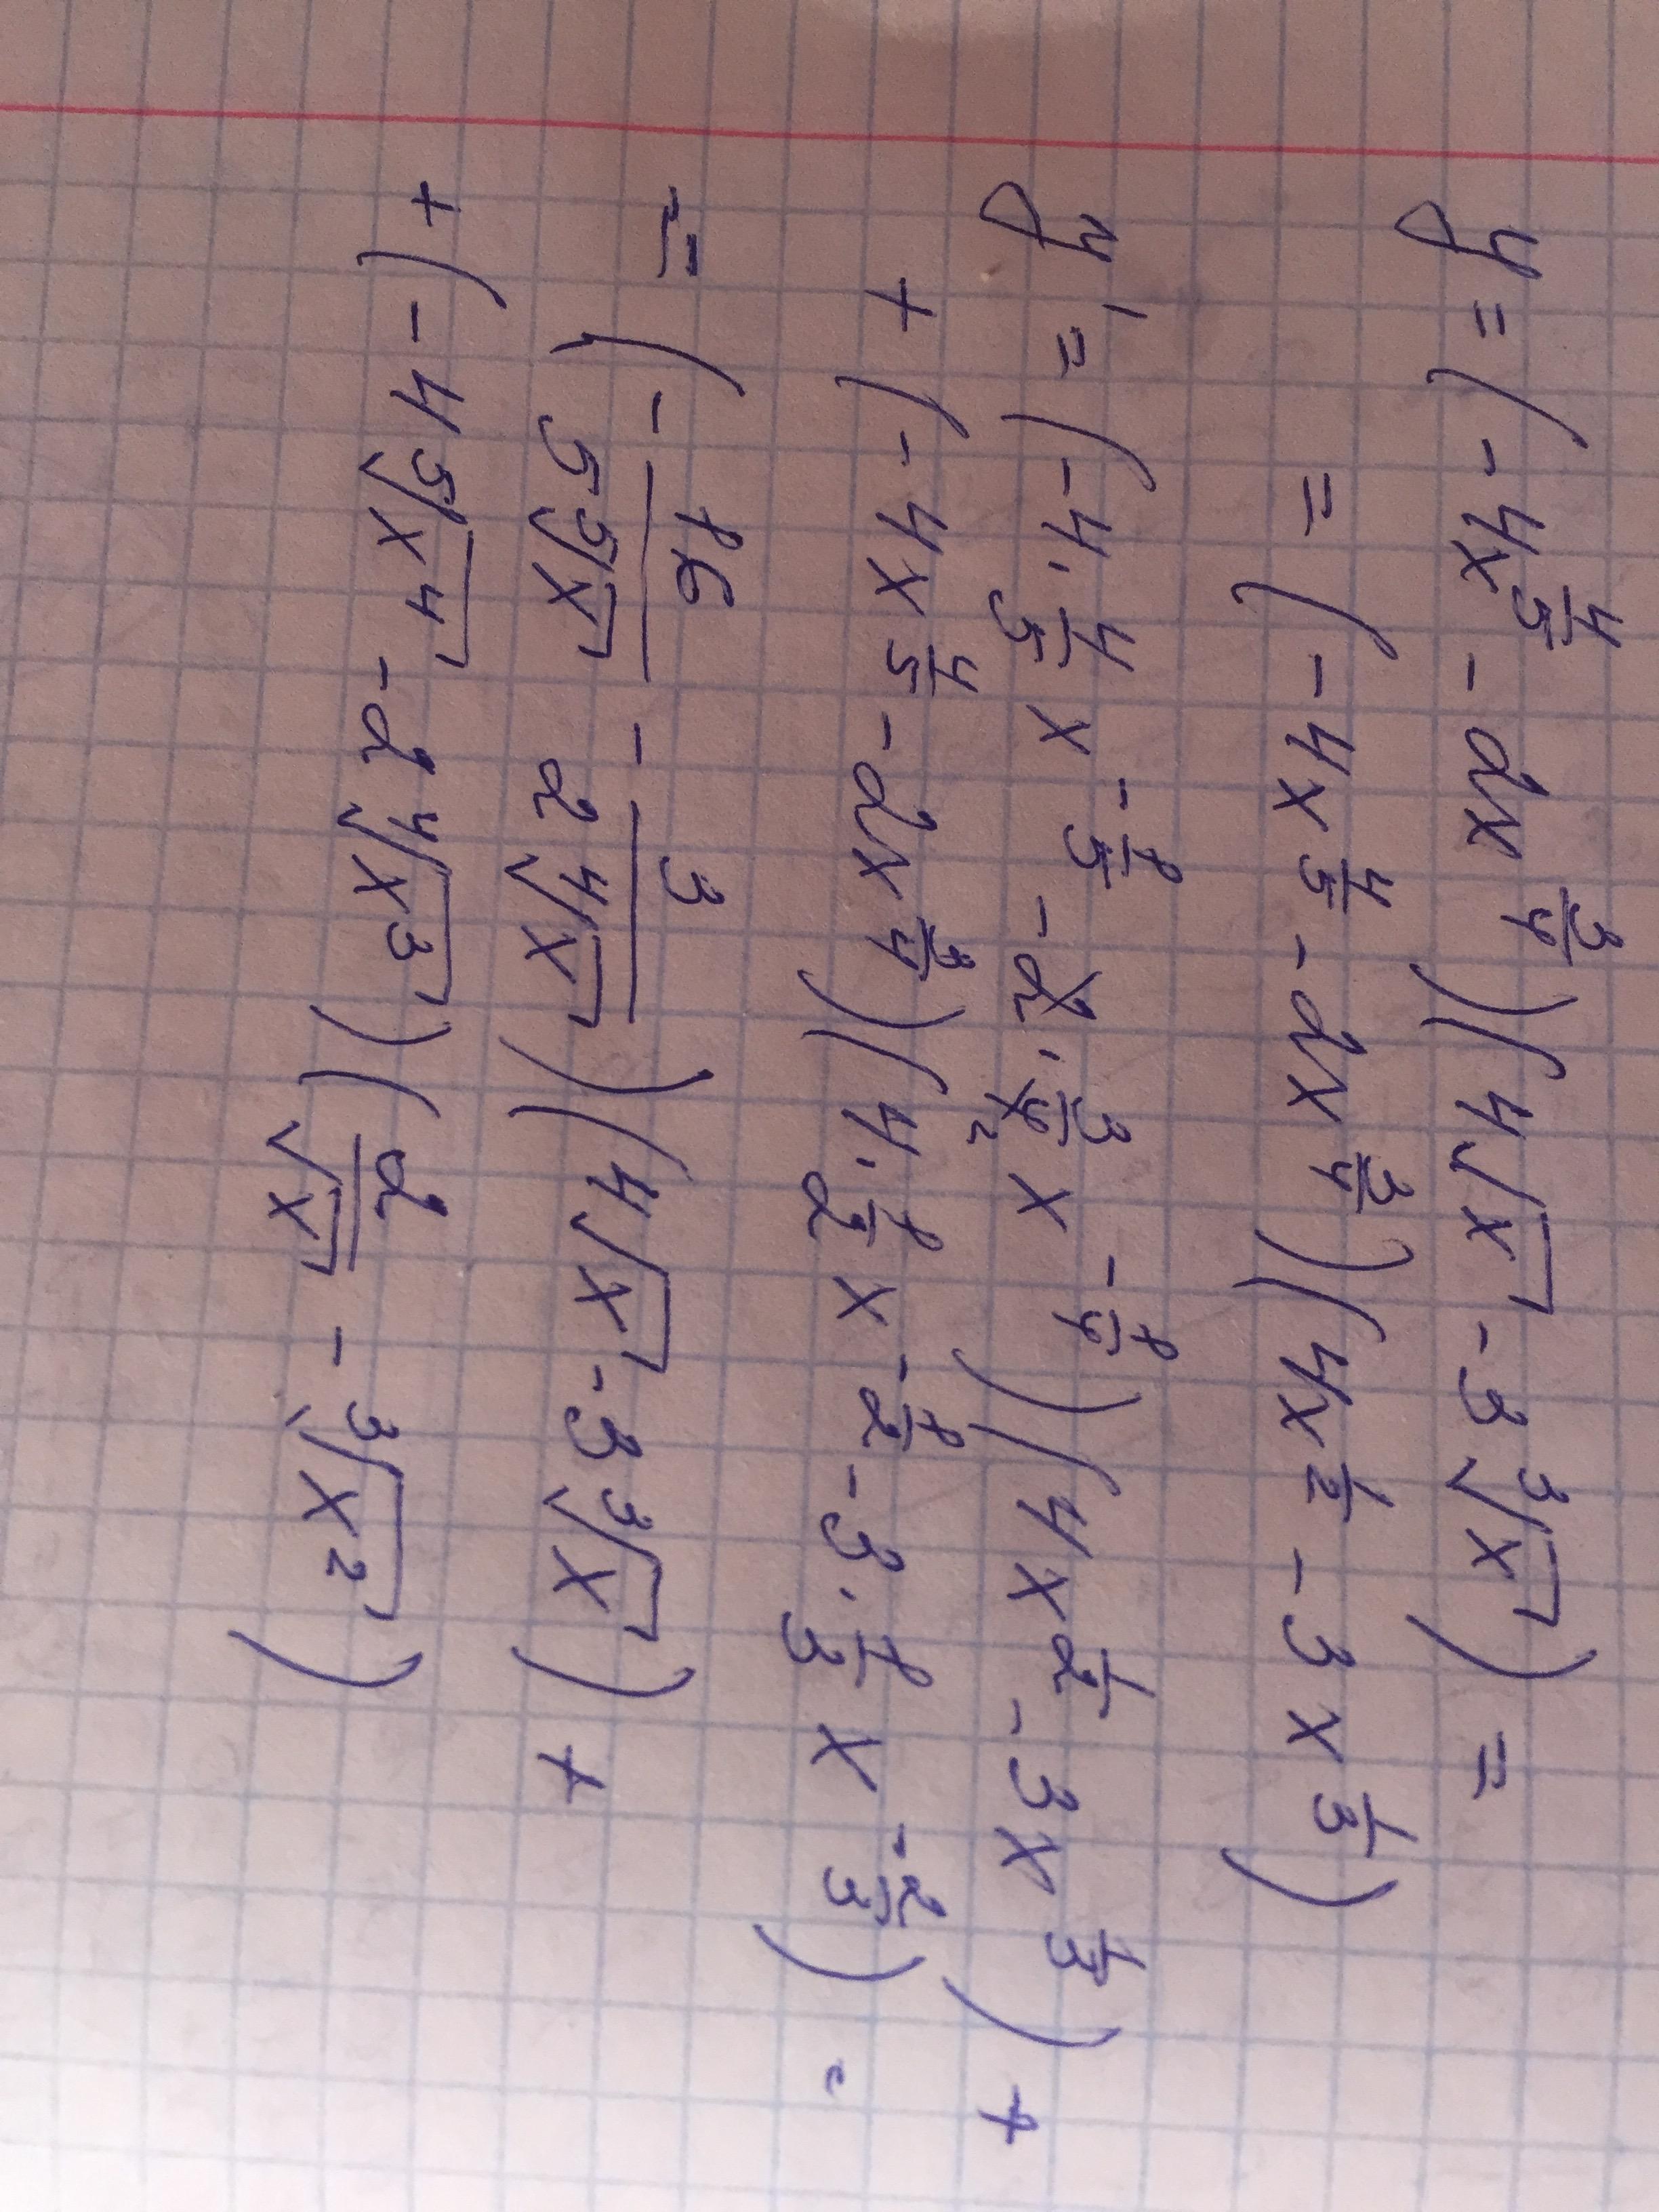 y = (-4x^{4/5} - 2x^{3/4})(4√x - 3∛x) =
= (-4x^{4/5} - 2x^{3/4})(4x^{1/2} - 3x^{1/3})
y' = (-4·4/5 x^{-1/5} - 2·3/4₂ x^{-1/4})(4x^{1/2} - 3x^{1/3}) +
+ (-4x^{4/5} - 2x^{3/4})(4·1/2 x^{-1/2} - 3·1/3 x^{-2/3}) =
= (-16/(5 ⁵√x) - 3/(2 ⁴√x))(4√x - 3∛x) +
+ (-4 ⁵√x⁴ - 2 ⁴√x³)(2/√x - ∛x²)